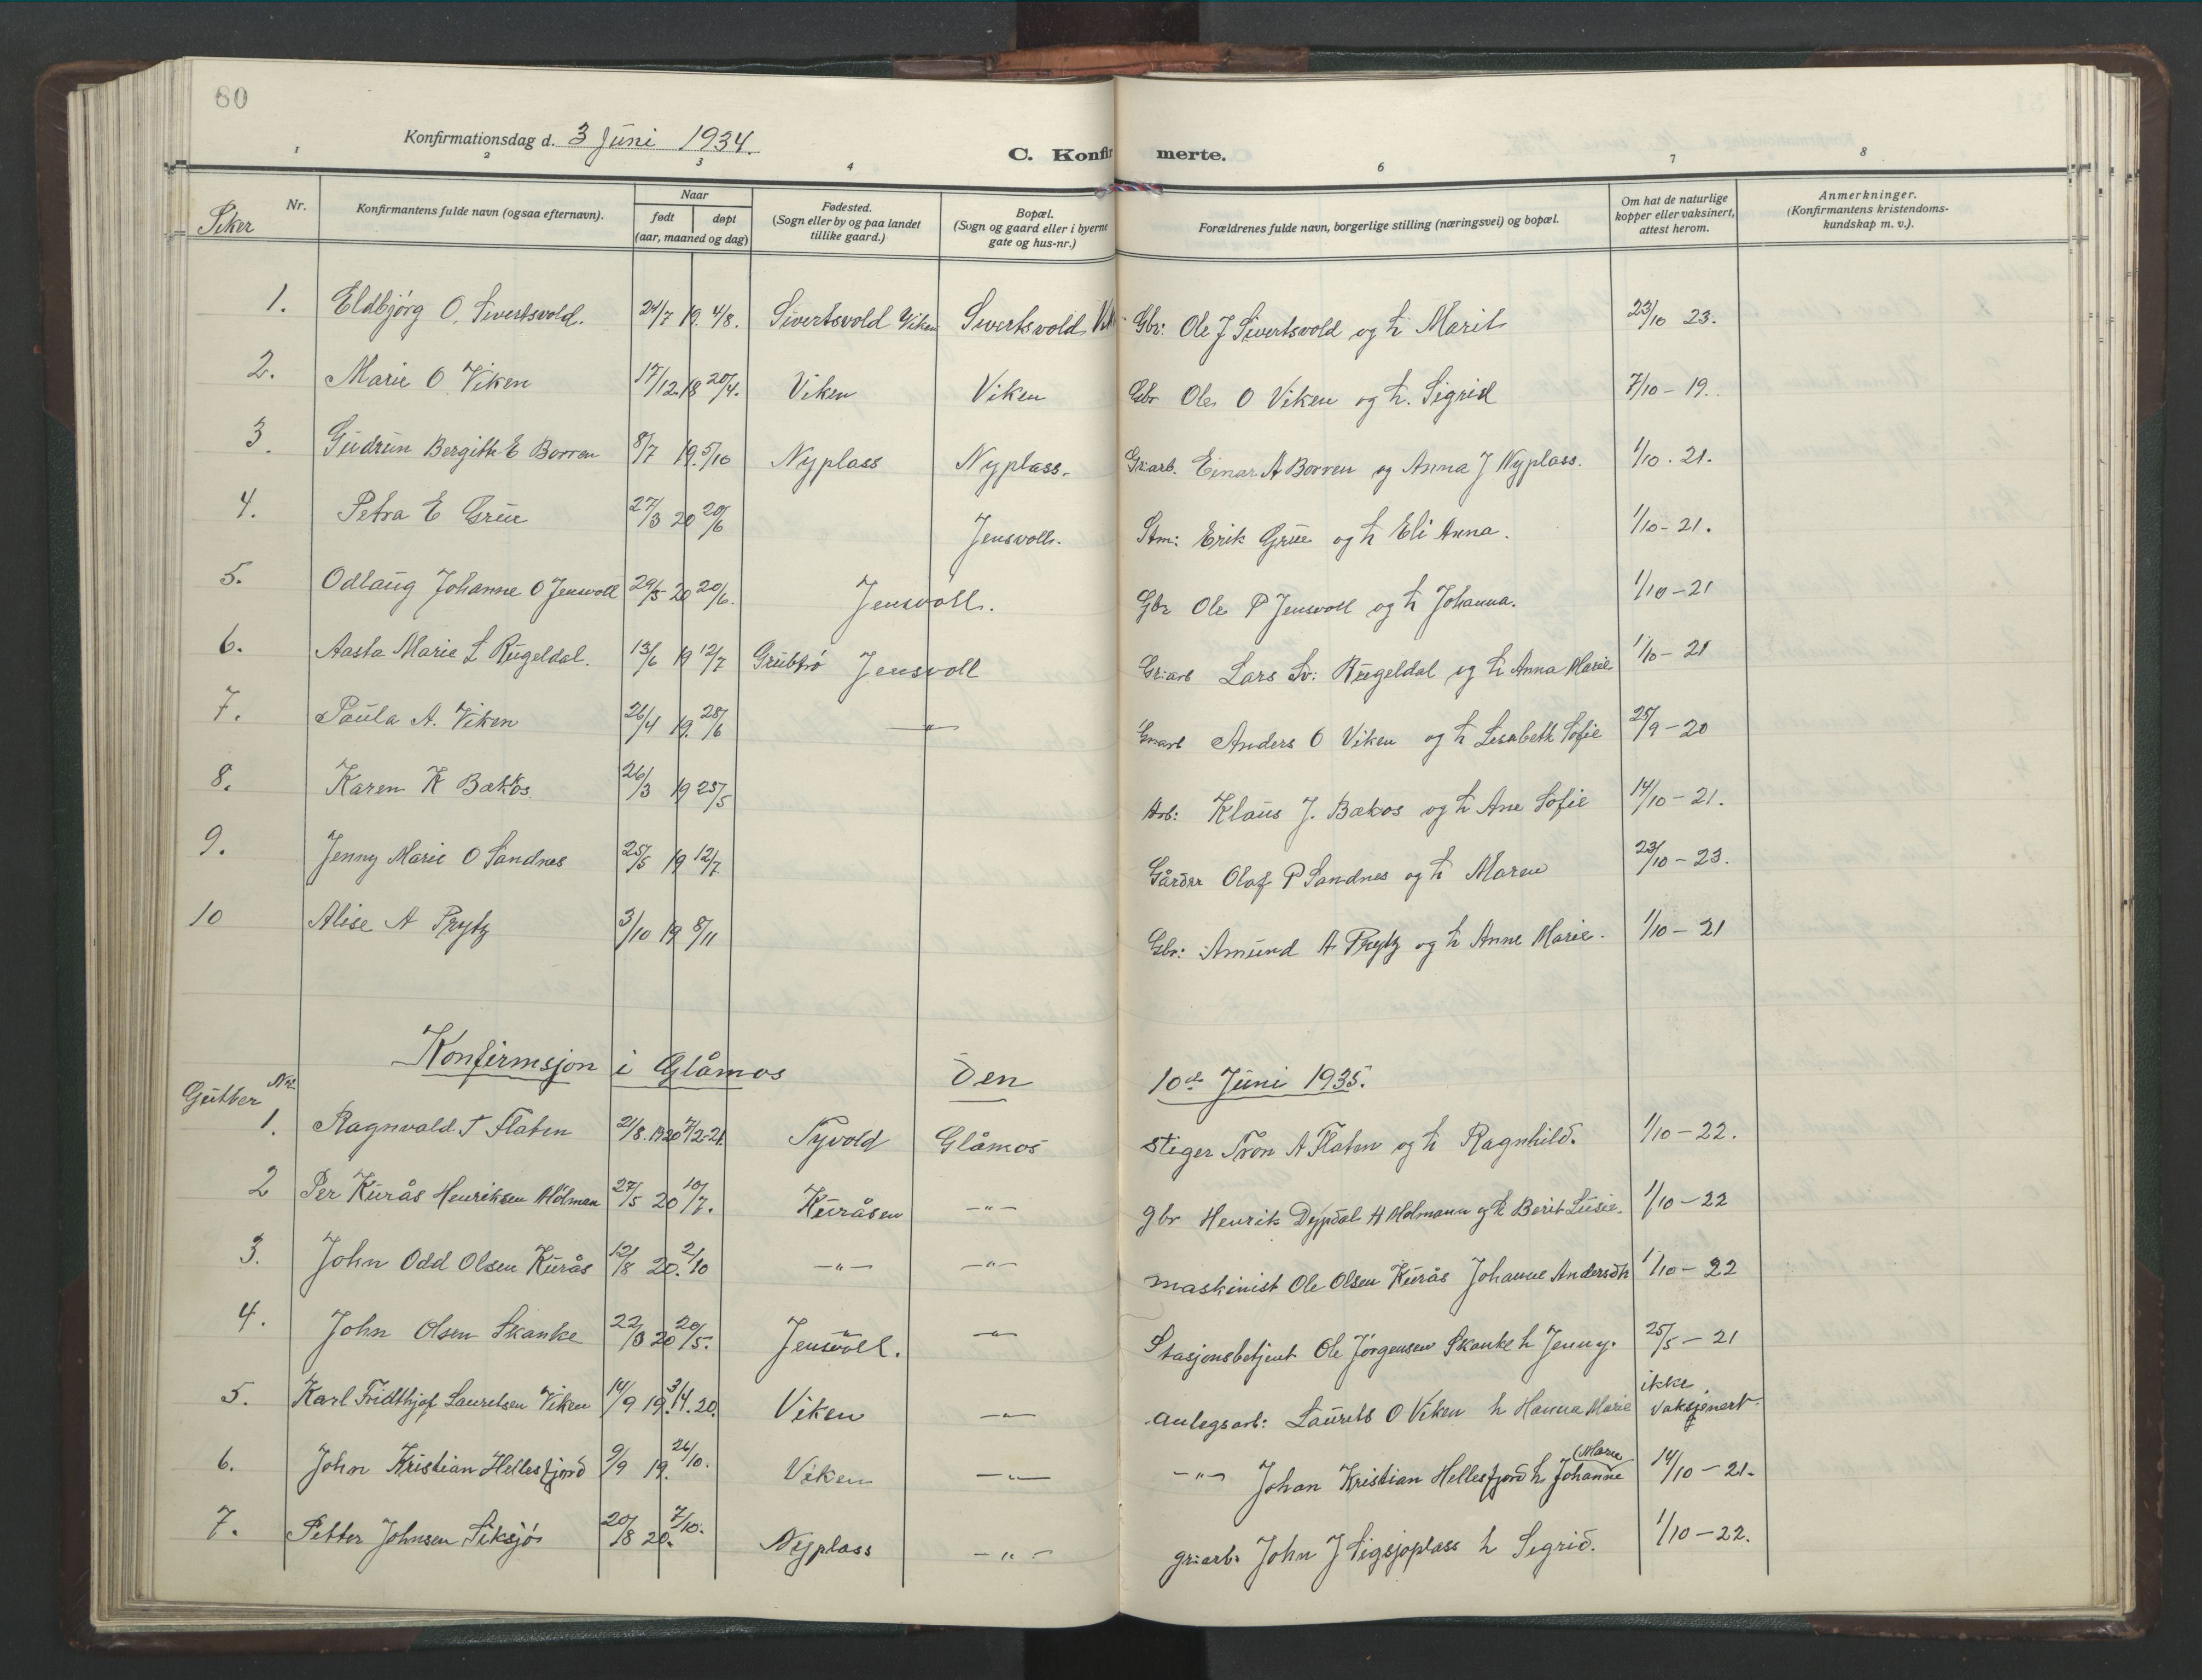 60
Konfirmationsdag d. 3 Juni 1934.
C. Konfirmerte.
1 2 3 4 6 7 8
Piker
Nr.
Konfirmantens fulde navn (ogsaa efternavn).
Naar
født døpt
(aar, maaned og dag)
Fødested.
(Sogn eller by og paa landet
tillike gaard.)
Bopæl.
(Sogn og gaard eller i byerne
gate og hus-nr.)
Forældrenes fulde navn, borgerlige stilling (næringsvei) og bopæl.
Om hat de naturlige
kopper eller vaksinert,
attest herom.
Anmerkninger.
(Konfirmantens kristendoms-
kundskap m. v.).
1. Eldbjørg O. Sivertsvold. 24/7 19. 4/8. Sivertsvold Viken Sivertsvold Gbr: Ole J Sivertsvold og h Marit 23/10 23.
2. Marie O Viken 17/12 18 20/4. Viken Viken Gbr Ole O Viken og h. Sigrid 7/10 – 19.
3. Gudrun Bergith E Borren 8/7 19. 5/10 Nyplass Nyplass. Gr:arb. Einar A Borren og Anna J Nyplass. 1/10 . 21.
4. Petra E Grue 27/3 20 20/6 Jensvoll. Stm: Erik Grue og h Eli Anna. 1/10 – 21.
5. Odlaug Johanne O Jensvoll 29/5 20 20/6. Jensvoll. Gbr Ole P Jensvoll og h Johanna. 1/10 – 21
6. Aasta Marie L Rugeldal. 13/6 19 12/7 Grubbrø Jensvoll Gr:arb Lars Sv: Rugeldal og h Anna Marie 1/10 – 21
7. Paula A. Viken 26/4 19. 28/6 —"— Gr:arb Anders O Viken og h Lisabeth Sofie 25/9 – 20
8. Karen K Bakos 26/3 19 25/5 Arb: Klaus J. Bakos og h Ane Sofie 14/10 – 21.
9. Jenny Marie O Sandnes 25/5 19 12/7. Gårdbr Olaf P Sandnes og h Maren 23/10 – 23.
10 Alise A Prytz 3/10 19 8/11 Gbr: Amund A Prytz og h Anne Marie. 1/10 – 21
Konfirmsjon i Glåmos den 10de Juni 1935.
Gutter Nr.
1. Ragnvald T Flaten 21/8. 1920 7/2-21. Tyvold Glåmos Stiger Tron A Flaten og h Ragnhild. 1/10 – 22.
2 Per Kurås Henriksen Holman 27/5 20 10/7. Kuråsen —"— gbr Henrik Dypdal H Holmann og h Berit Lusie. 1/10 – 22
3. John Odd Olsen Kurås 12/8 20. 2/10 —"— —"— maskinist Ole Olsen Kurås Johanne Andersdtr 1/10 – 22
4. John Olsen Skanke 22/3 20 20/5. Jensvoll. —"— Stasjonsbetjent Ole Jørgensen Skanke h Jenny. 25/5 – 21
5. Karl Fridthjof Lauretsen Viken 14/9 19. 3/4. 20. Viken —"— anlegsarb: Laurets O Viken h Hanna Marie ikke vaksjenert.
6. John Kristian Hellesfjord 9/9 19. 26/10. Viken —"— —"— Johan Kristian Hellesfjord h Johanne (Maren 14/10 – 21.
7. Petter Johnsen Siksjø 20/8 20. 7/10. Nyplass —"— gr:arb. John J Sigsjoplass h Segrid. 1/10 – 22.